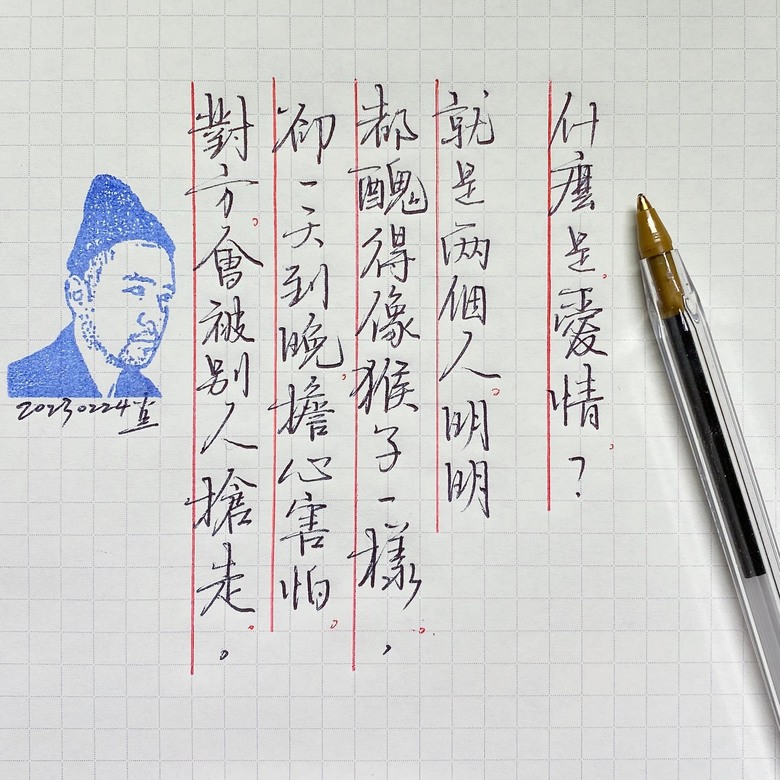 什麼是愛情？
就是両個人明明
都醜得像猴子一樣，
卻一天到晚擔心害怕
對方會被別人搶走。
20230224